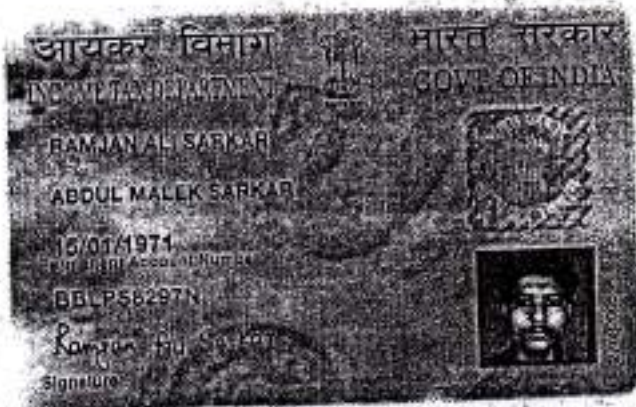 आयकर विभाग
भारत सरकार
INCOME TAX DEPARTMENT
GOVT. OF INDIA
RAMJAN ALI SARKAR
ABDUL MALEK SARKAR
15/01/1971
Permanent Account Number
Ramjan Ali Sarkar
Signature